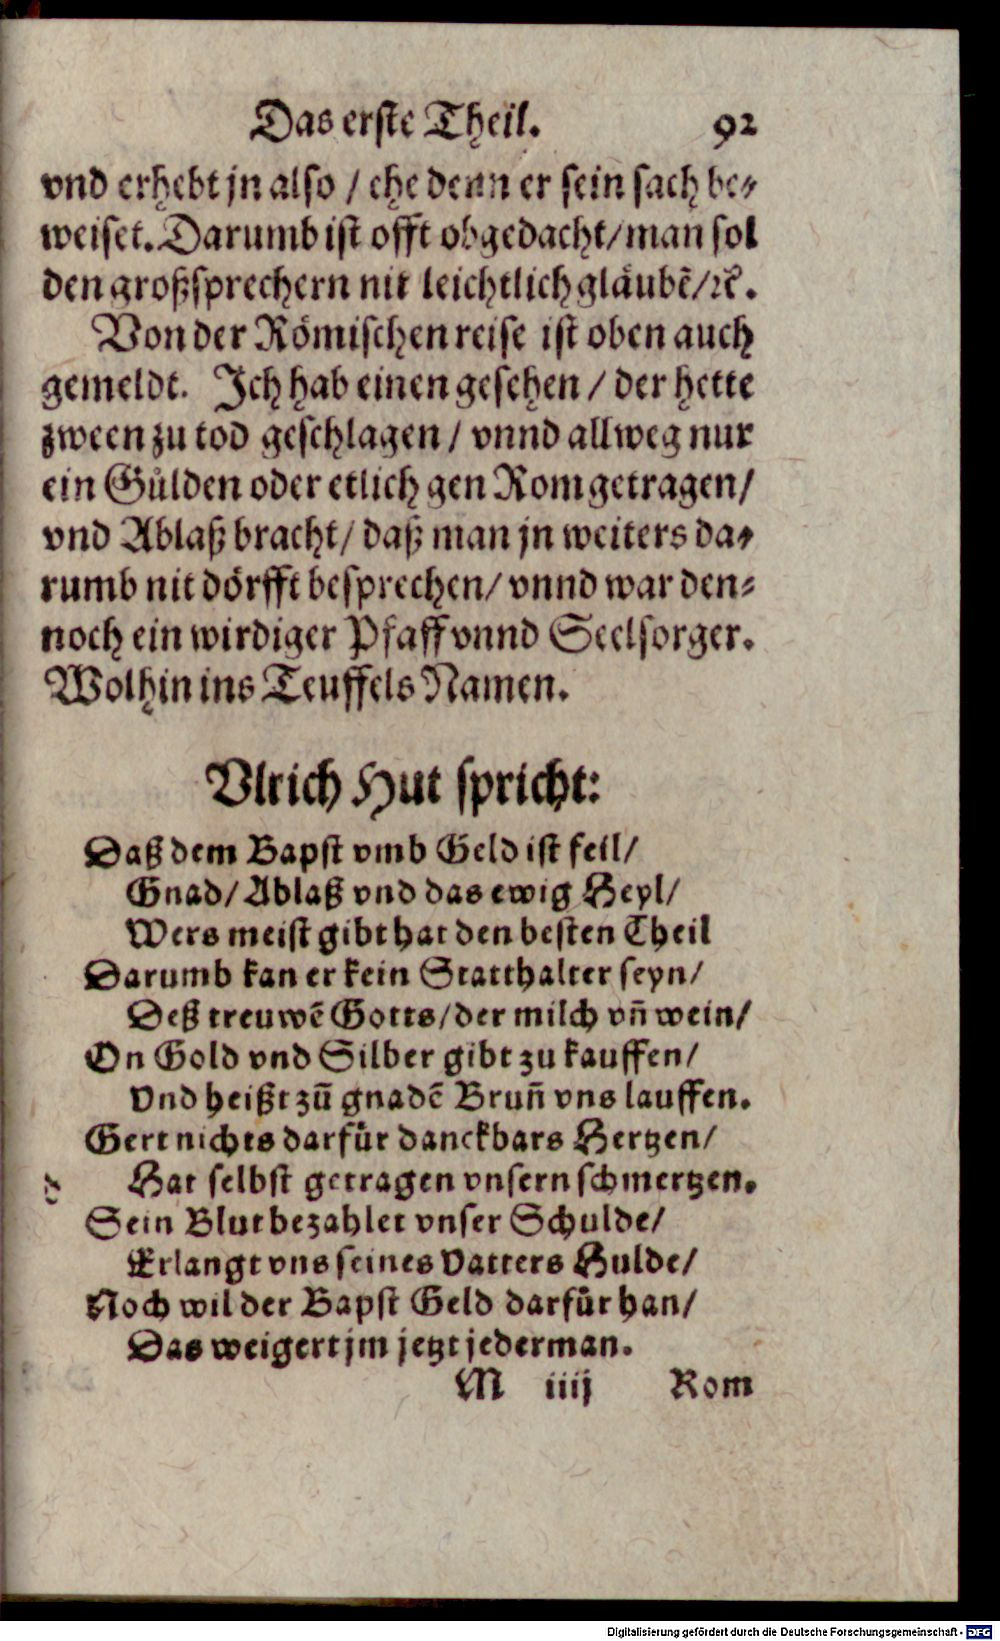 Das erste Theil. 92
vnd erhebt jn also / ehe denn er sein sach be-
weiset. Darumb ist offt obgedacht/ man sol
den großsprechern nit leichtlich gläubẽ/ ꝛc̃.
Von der Römischen reise ist oben auch
gemeldt. Jch hab einen gesehen / der hette
zween zu tod geschlagen / vnnd allweg nur
ein Gůlden oder etlich gen Rom getragen/
vnd Ablaß bracht/ daß man jn weiters da-
rumb nit dörfft besprechen/ vnnd war den-
noch ein wirdiger Pfaff vnnd Seelsorger.
Wolhin ins Teuffels Namen.
Vlrich Hut spricht:
Daß dem Bapst vmb Geld ist feil/
Gnad/ Ablaß vnd das ewig Heyl/
Wers meist gibt hat den besten Theil
Darumb kan er kein Statthalter seyn/
Deß treuwẽ Gotts/ der milch vñ wein/
On Gold vnd Silber gibt zu kauffen/
Vnd heißt zũ gnadẽ Bruñ vns lauffen.
Gert nichts darfür danckbars Hertzen/
Hat selbst getragen vnsern schmertzen.
Sein Blut bezahlet vnser Schulde/
Erlangt vns seines Vatters Hulde/
Noch wil der Bapst Geld darfür han/
Das weigert jm jetzt jederman.
M iiij Rom
Digitalisierung gefördert durch die Deutsche Forschungsgemeinschaft - DFG